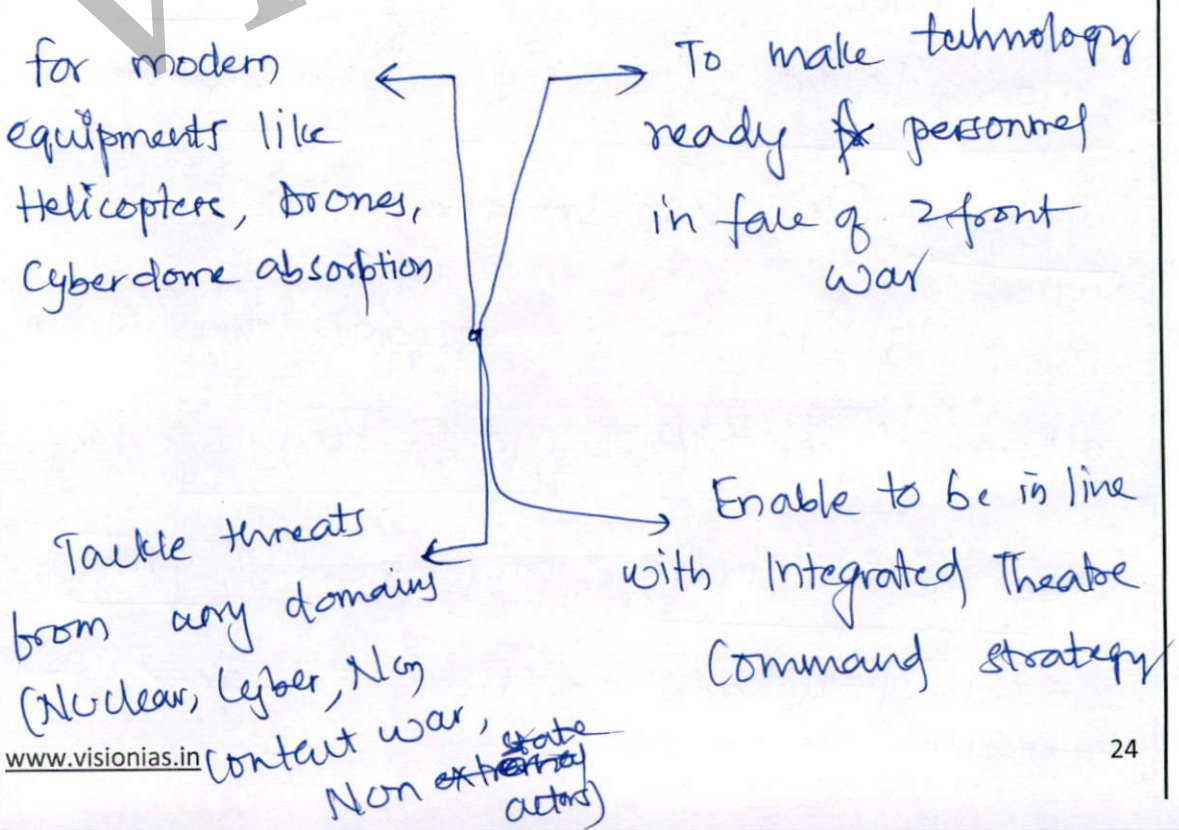 for modern
equipments like
Helicopters, Drones,
Cyberdome absorption
To make technology
ready personnel
in face of 2 front
war
Tackle threats
from any domains
(Nuclear, Cyber, Non
contact war,
Non state
actors)
Enable to be in line
with Integrated Theatre
Command strategy
www.visionias.in
24